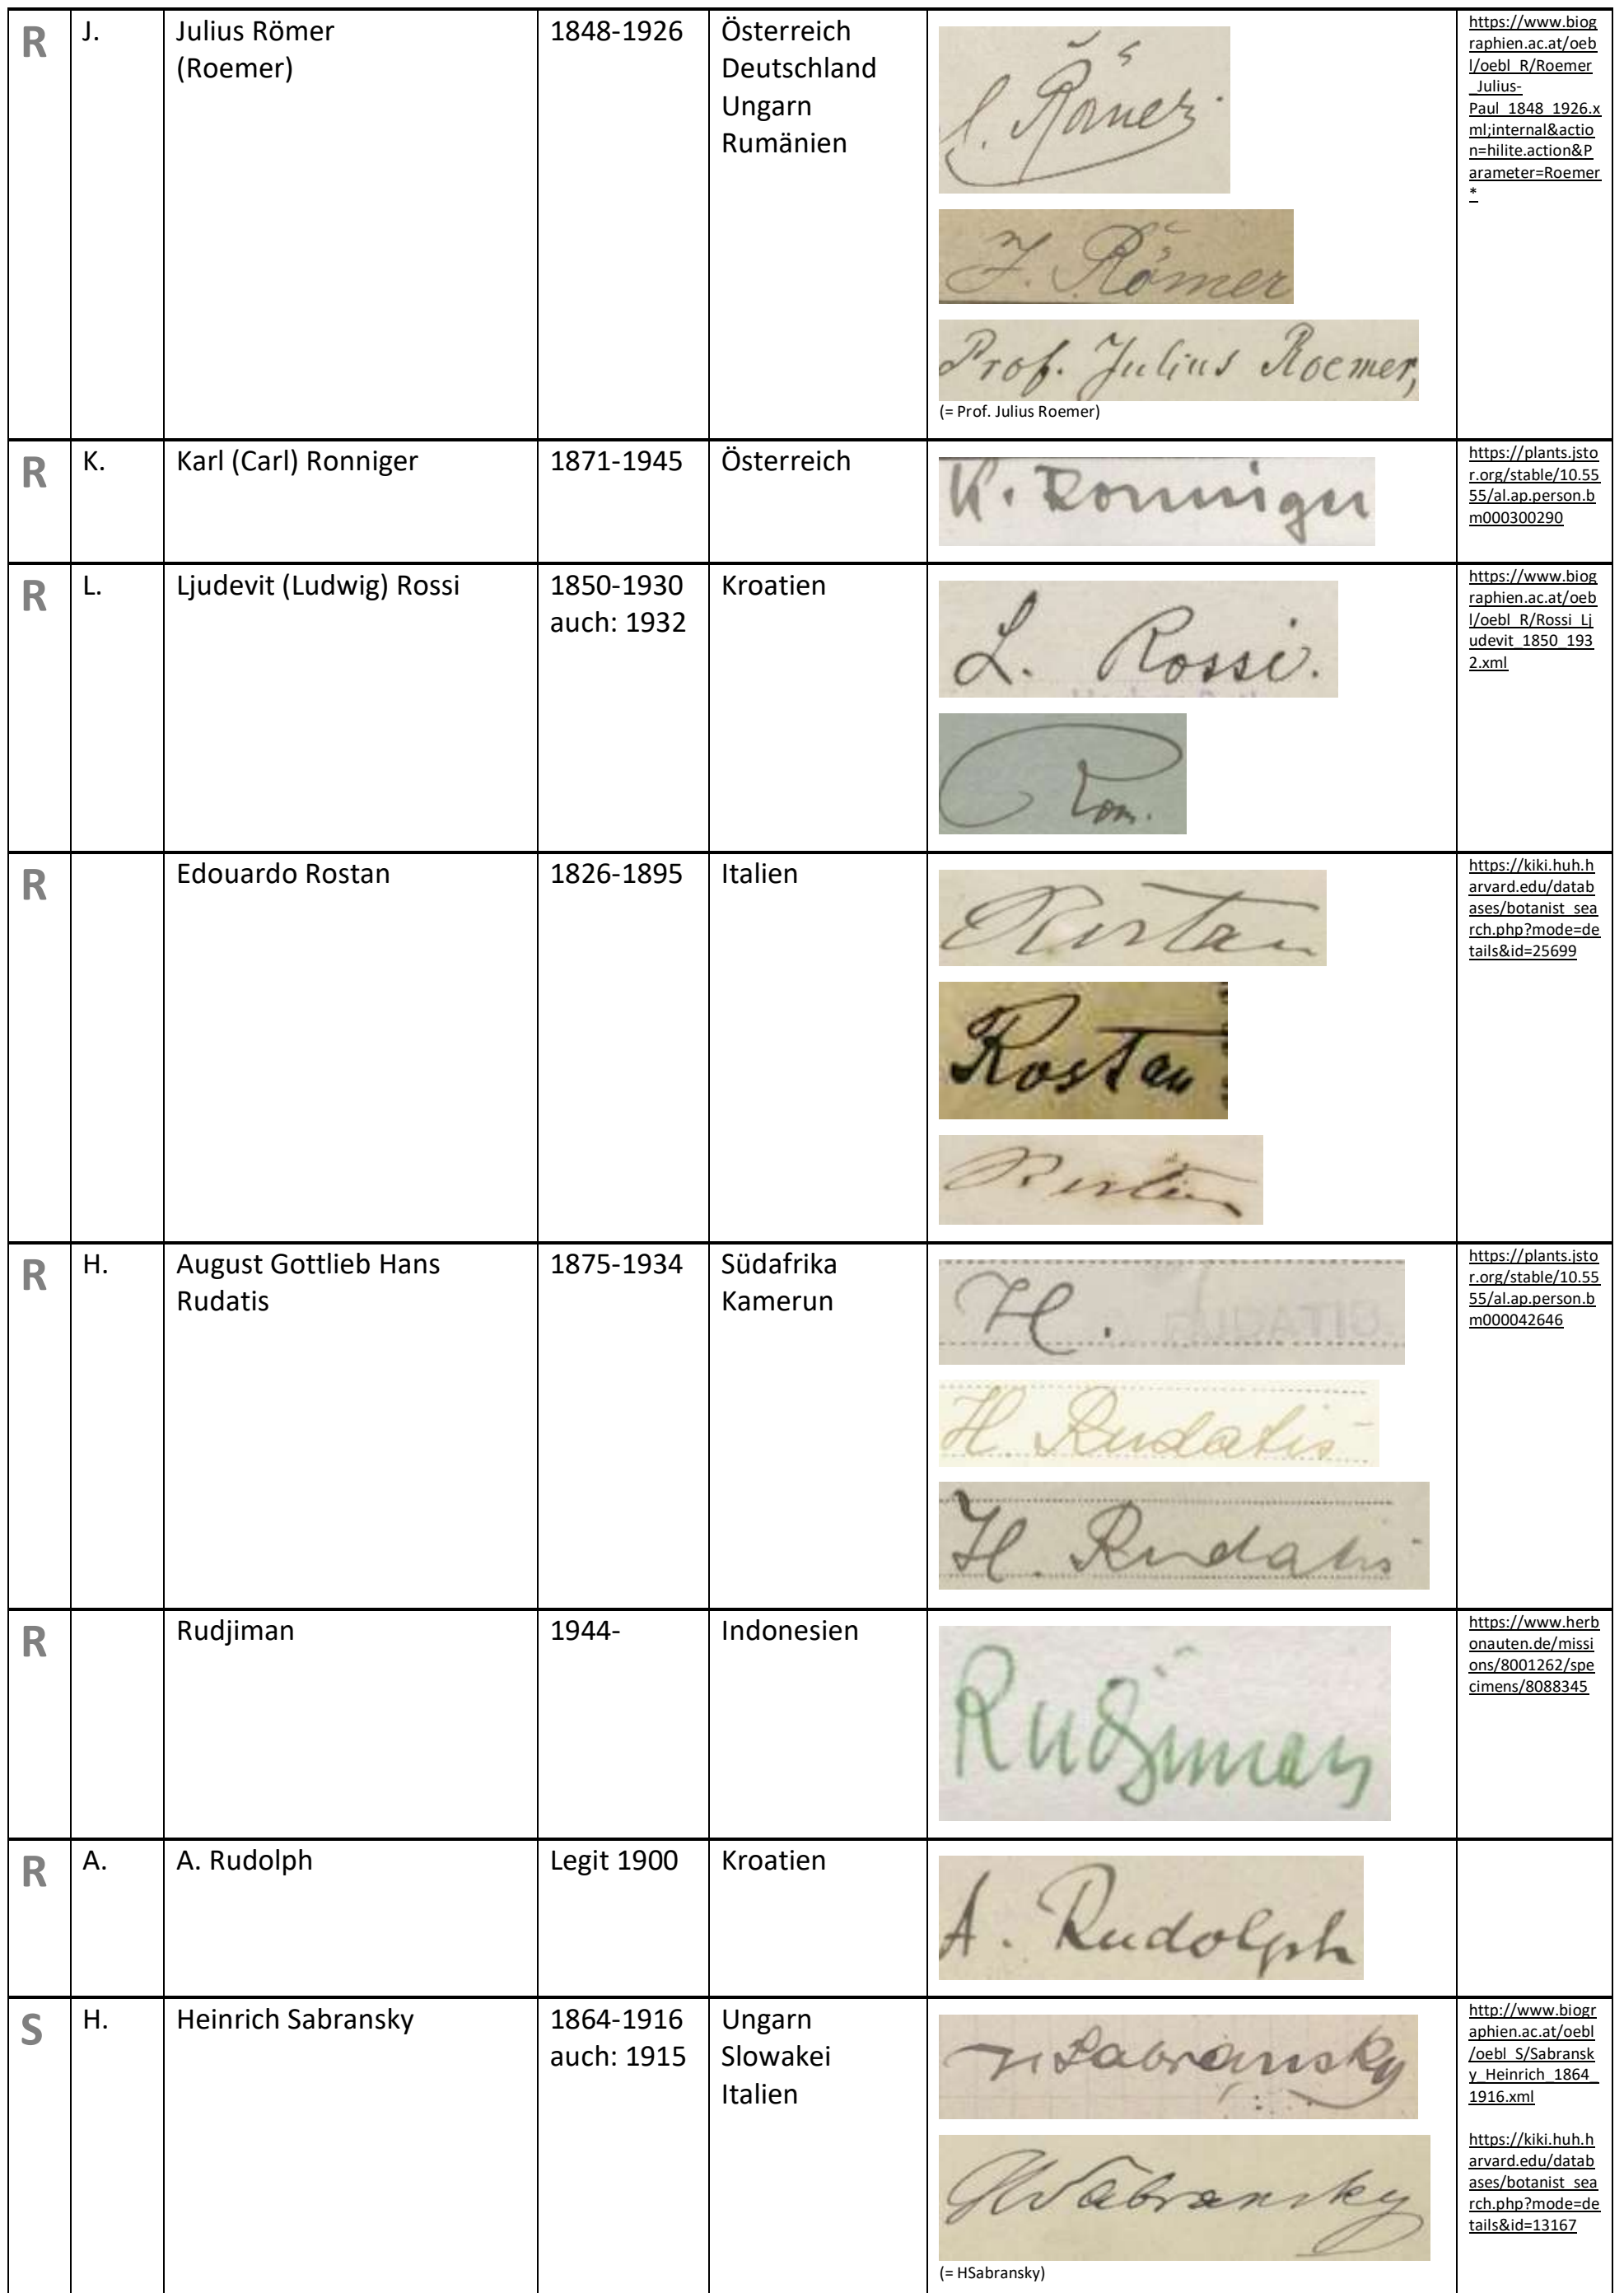 R
J.
Julius Römer
(Roemer)
1848-1926
Österreich
Deutschland
Ungarn
Rumänien
J. Römer
J. Römer
Prof. Julius Roemer,
(= Prof. Julius Roemer)
https://www.biog
raphien.ac.at/oeb
l/oebl_R/Roemer
_Julius-
Paul_1848_1926.x
ml;internal&actio
n=hilite.action&P
arameter=Roemer
*
R
K.
Karl (Carl) Ronniger
1871-1945
Österreich
K. Ronniger
https://plants.jsto
r.org/stable/10.55
55/al.ap.person.b
m000300290
R
L.
Ljudevit (Ludwig) Rossi
1850-1930
auch: 1932
Kroatien
L. Rossi.
https://www.biog
raphien.ac.at/oeb
l/oebl_R/Rossi_Lj
udevit_1850_193
2.xml
R
Edouardo Rostan
1826-1895
Italien
Rostan
Rostan
Rostan
https://kiki.huh.h
arvard.edu/datab
ases/botanist_sea
rch.php?mode=de
tails&id=25699
R
H.
August Gottlieb Hans
Rudatis
1875-1934
Südafrika
Kamerun
H. RUDATIS
H. Rudatis
H. Rudatis
https://plants.jsto
r.org/stable/10.55
55/al.ap.person.b
m000042646
R
Rudjiman
1944-
Indonesien
Rudjiman
https://www.herb
onauten.de/missi
ons/8001262/spe
cimens/8088345
R
A.
A. Rudolph
Legit 1900
Kroatien
A. Rudolph
S
H.
Heinrich Sabransky
1864-1916
auch: 1915
Ungarn
Slowakei
Italien
H. Sabransky
HSabransky
(= HSabransky)
http://www.biogr
aphien.ac.at/oebl
/oebl_S/Sabransk
y_Heinrich_1864_
1916.xml
https://kiki.huh.h
arvard.edu/datab
ases/botanist_sea
rch.php?mode=de
tails&id=13167